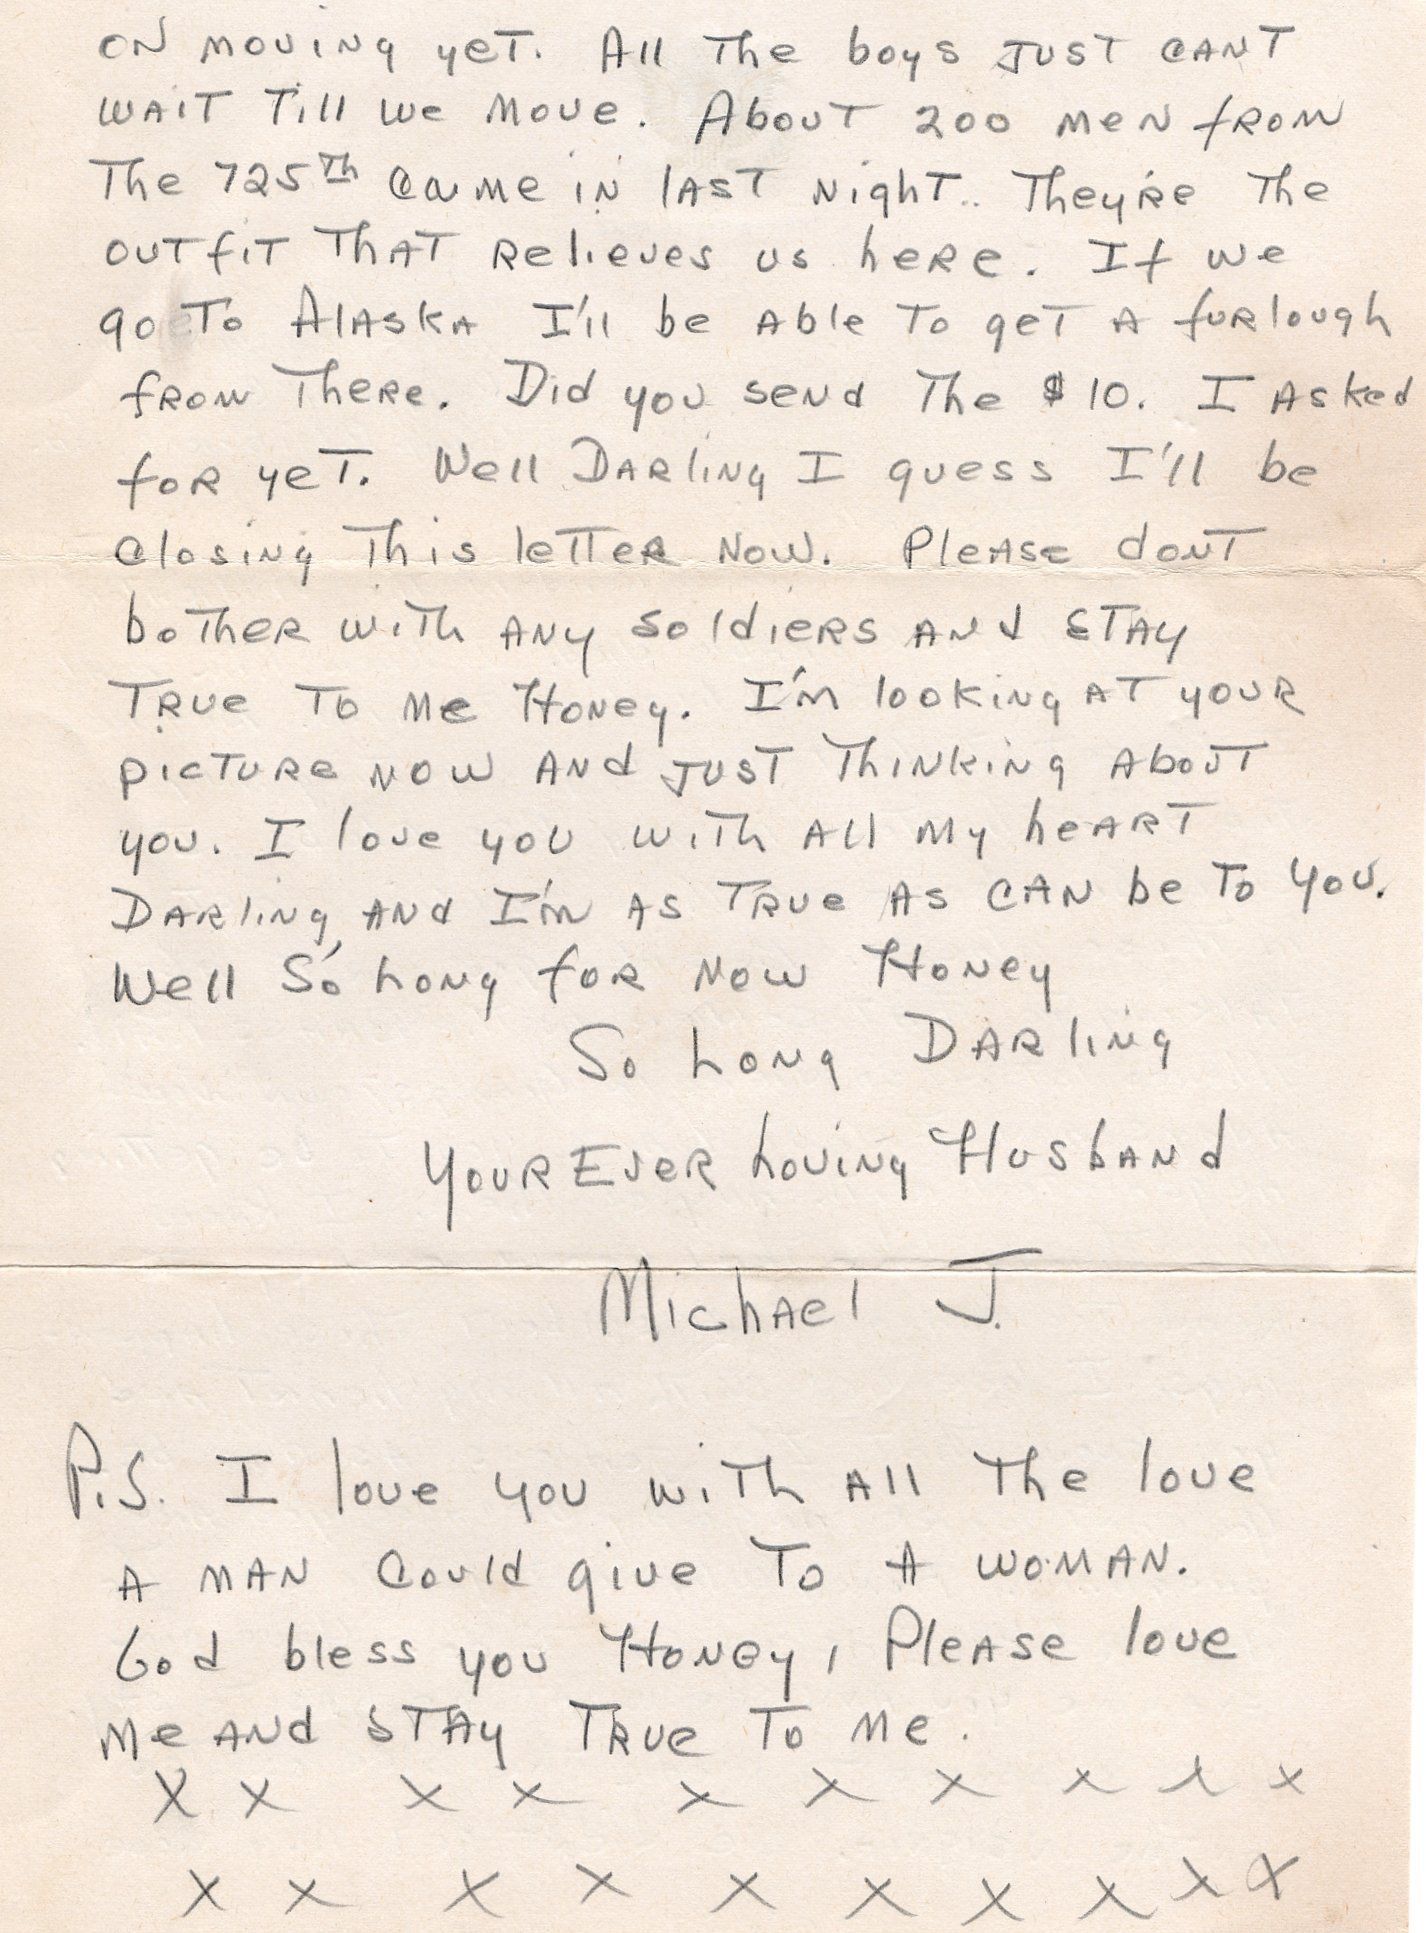 on moving yet. All the boys just cant
wait till we move. About 200 men from
the 725th came in last night.. They're the
outfit that relieves us here. If we
go to Alaska I'll be able to get a furlough
from there. Did you send the $10. I asked
for yet. Well Darling I guess I'll be
closing this letter now. Please dont
bother with any soldiers and stay
true to me Honey. I'm looking at your
picture now and just thinking about
you. I love you with all my heart
Darling and I'm as true as can be to you.
Well So Long for now Honey
So Long Darling
Your Ever Loving Husband
Michael J.
P.S. I love you with all the love
a man could give to a woman.
God bless you Honey, Please love
me and stay true to me.
x x x x x x x x x x
x x x x x x x x x x